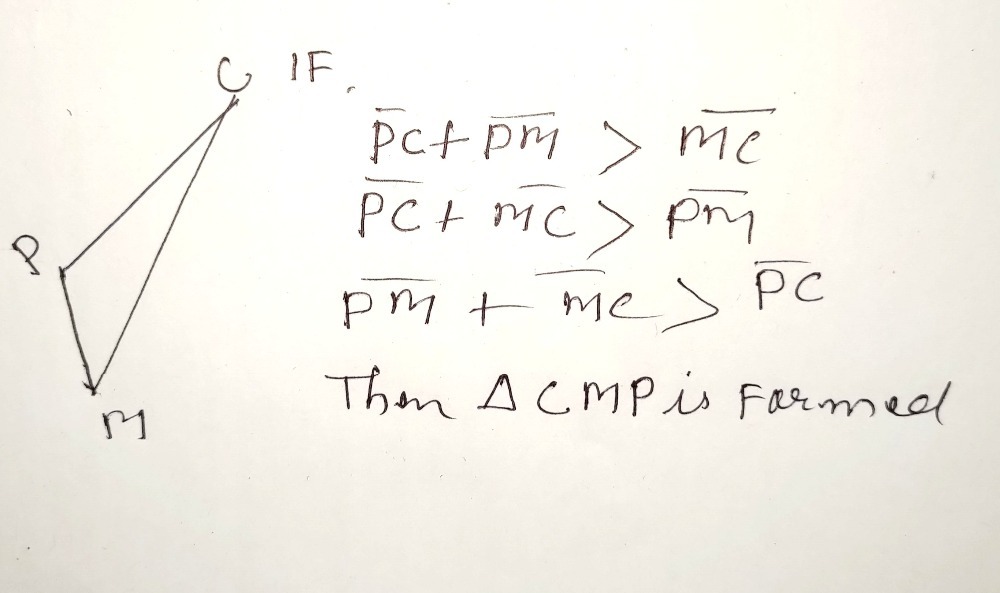 C IF
P̅C + P̅M̅ > M̅C̅
P̅C̅ + M̅C̅ > P̅M̅
P
P̅M̅ + M̅C̅ > P̅C̅
Then Δ CMP is Formed
M